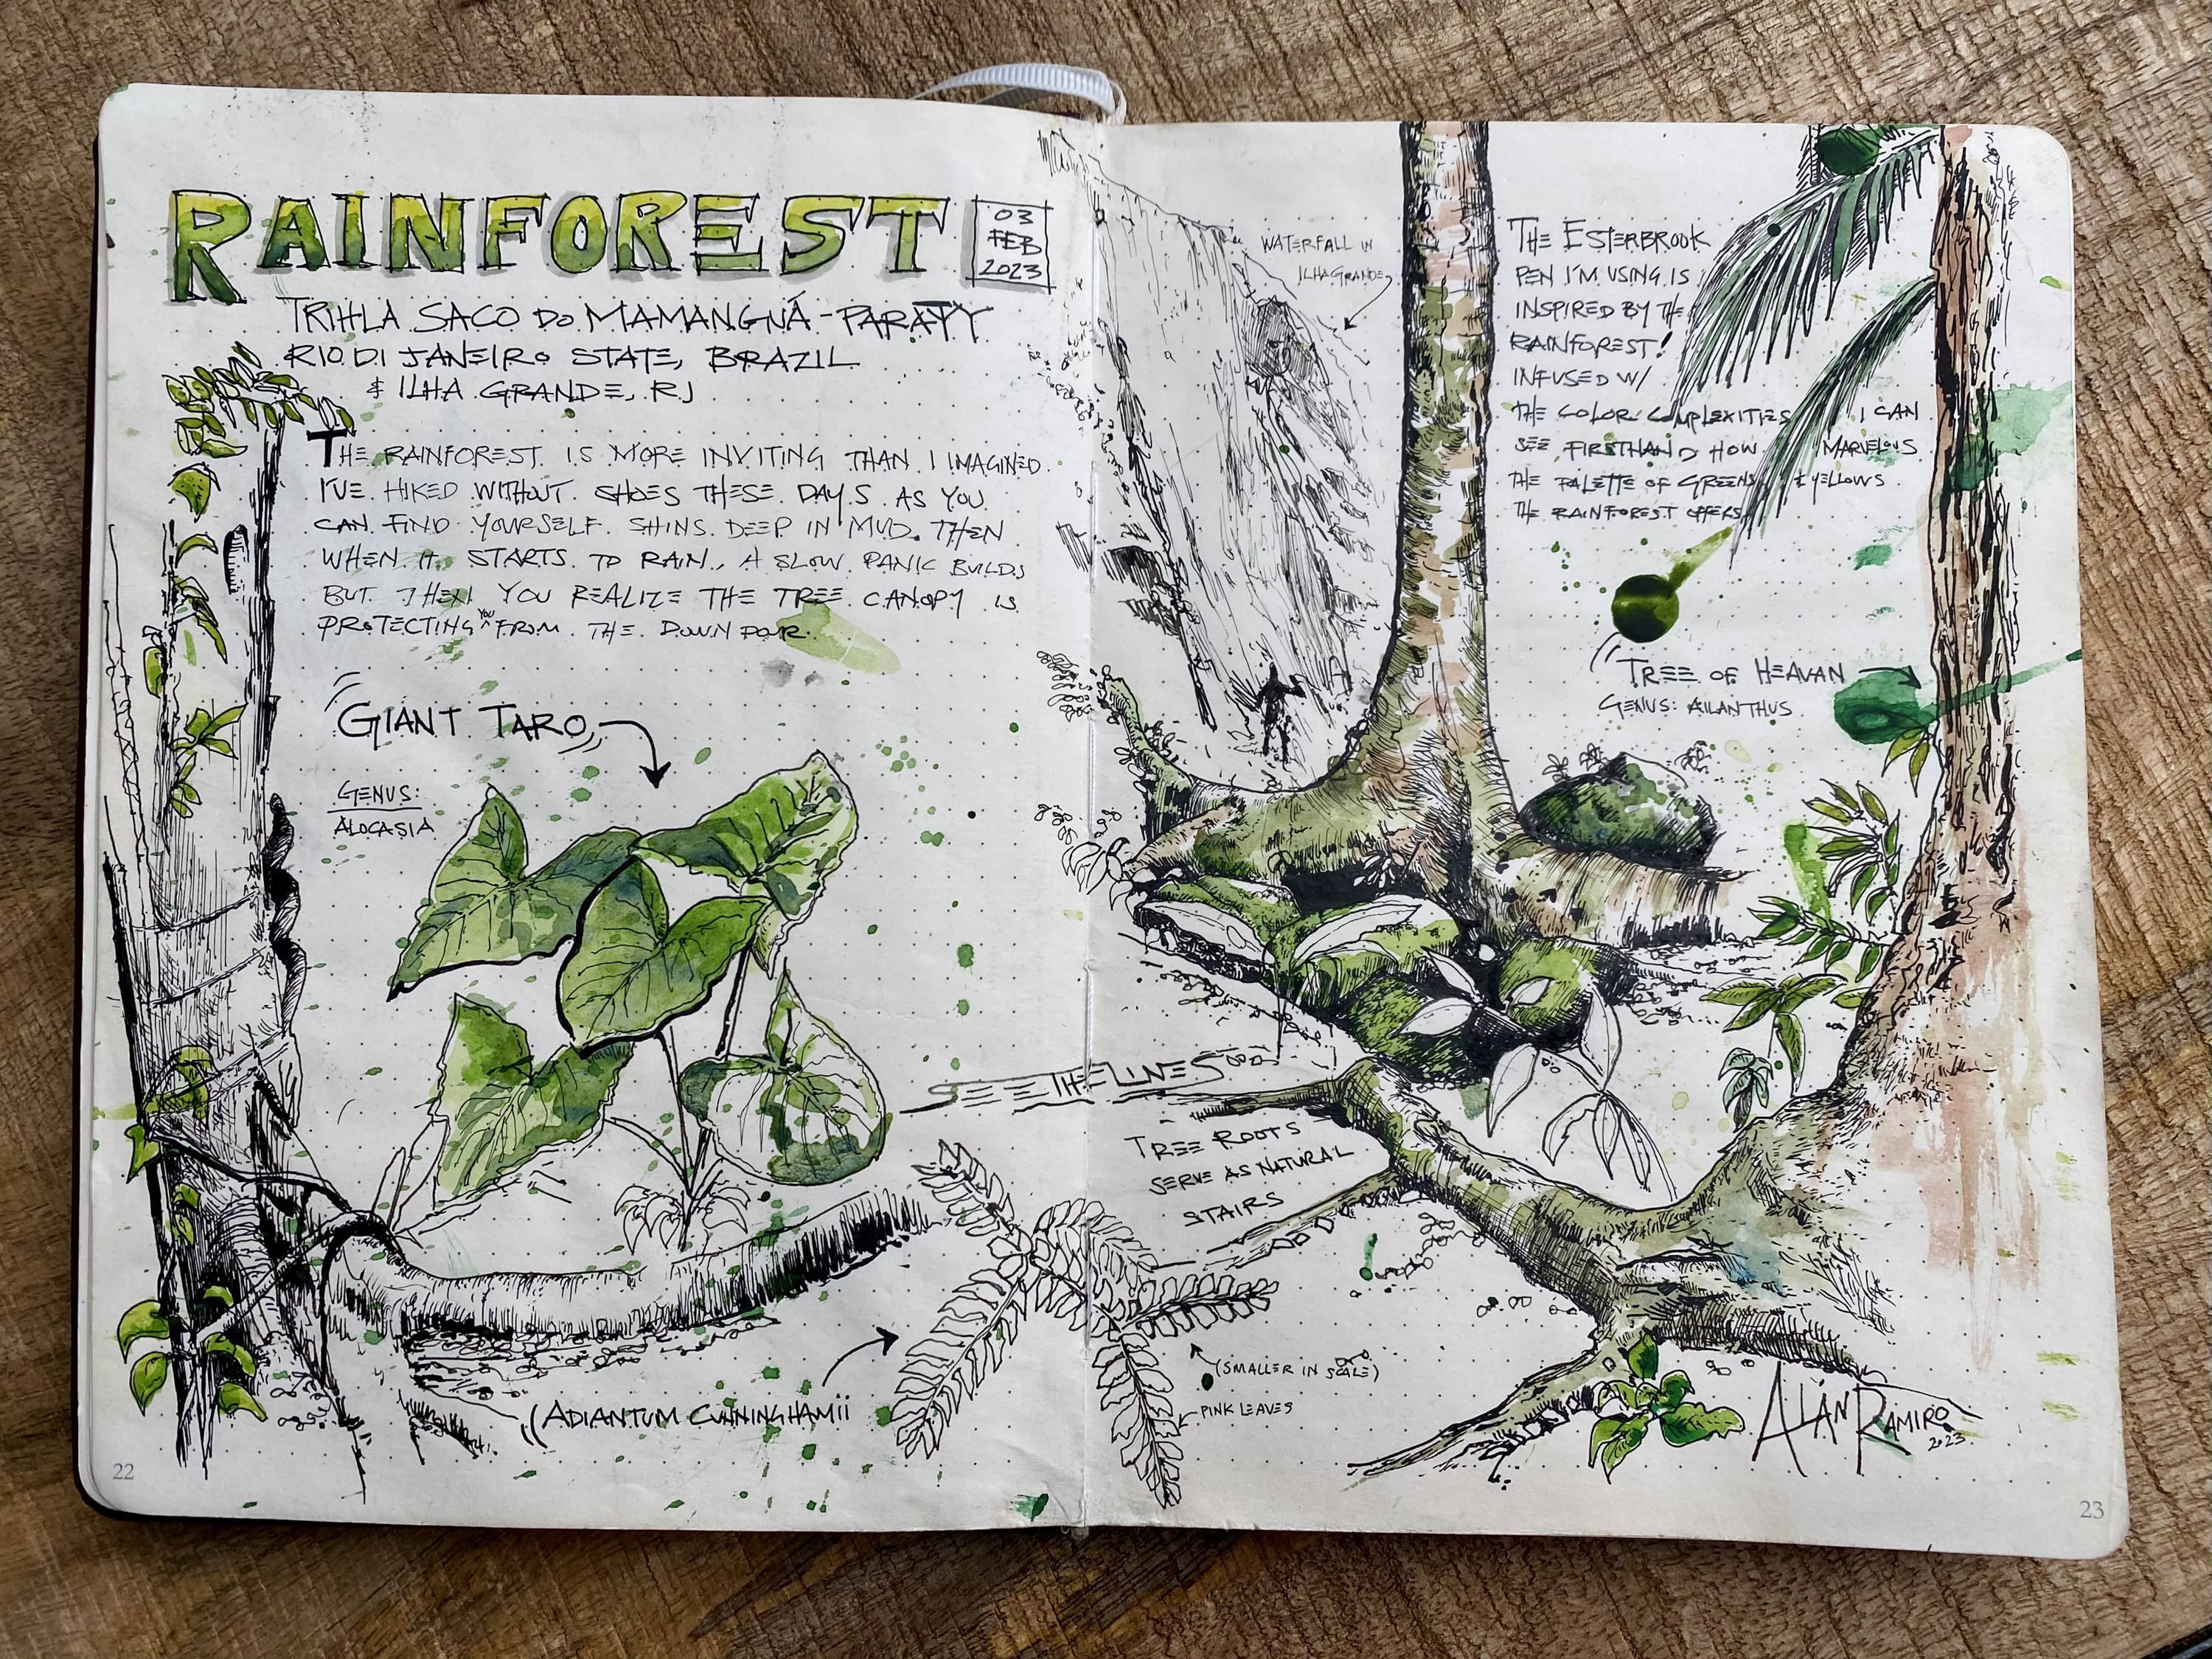 RAINFOREST
03
FEB
2023
TRIHLA SACO DO MAMANGUÁ - PARATY
RIO DI JANEIRO STATE, BRAZIL
& ILHA GRANDE, RJ
THE RAINFOREST IS MORE INVITING THAN I IMAGINED.
I'VE HIKED WITHOUT SHOES THESE DAYS AS YOU
CAN FIND YOURSELF SHINS DEEP IN MUD. THEN
WHEN IT STARTS TO RAIN, A SLOW PANIC BUILDS
BUT THEN YOU REALIZE THE TREE CANOPY IS
PROTECTING YOU FROM THE DOWN POUR.
GIANT TARO
GENUS:
ALOCASIA
ADIANTUM CUNNINGHAMII
22
WATERFALL IN
ILHA GRANDE
THE ESTERBROOK
PEN I'M USING IS
INSPIRED BY THE
RAINFOREST!
INFUSED W/
THE COLOR COMPLEXITIES I CAN
SEE FIRSTHAND HOW MARVELOUS
THE PALETTE OF GREENS & YELLOWS
THE RAINFOREST OFFERS
TREE OF HEAVAN
GENUS: AILANTHUS
SEE THE LINES
TREE ROOTS
SERVE AS NATURAL
STAIRS
(SMALLER IN SCALE)
PINK LEAVES
ALAN RAMIRO
2023
23